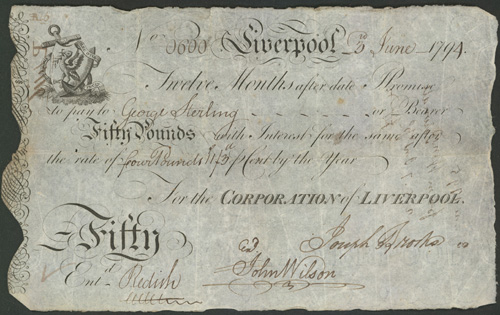 No 3000 Liverpool 3rd June 1794.
Twelve Months after date I Promise
to pay to George Sterling or Bearer
Fifty Pounds with Interest for the same after
the rate of four Pounds P Cent by the Year
For the CORPORATION of LIVERPOOL.
Fifty
Joseph Brooks
Entd. Redish
John Wilson